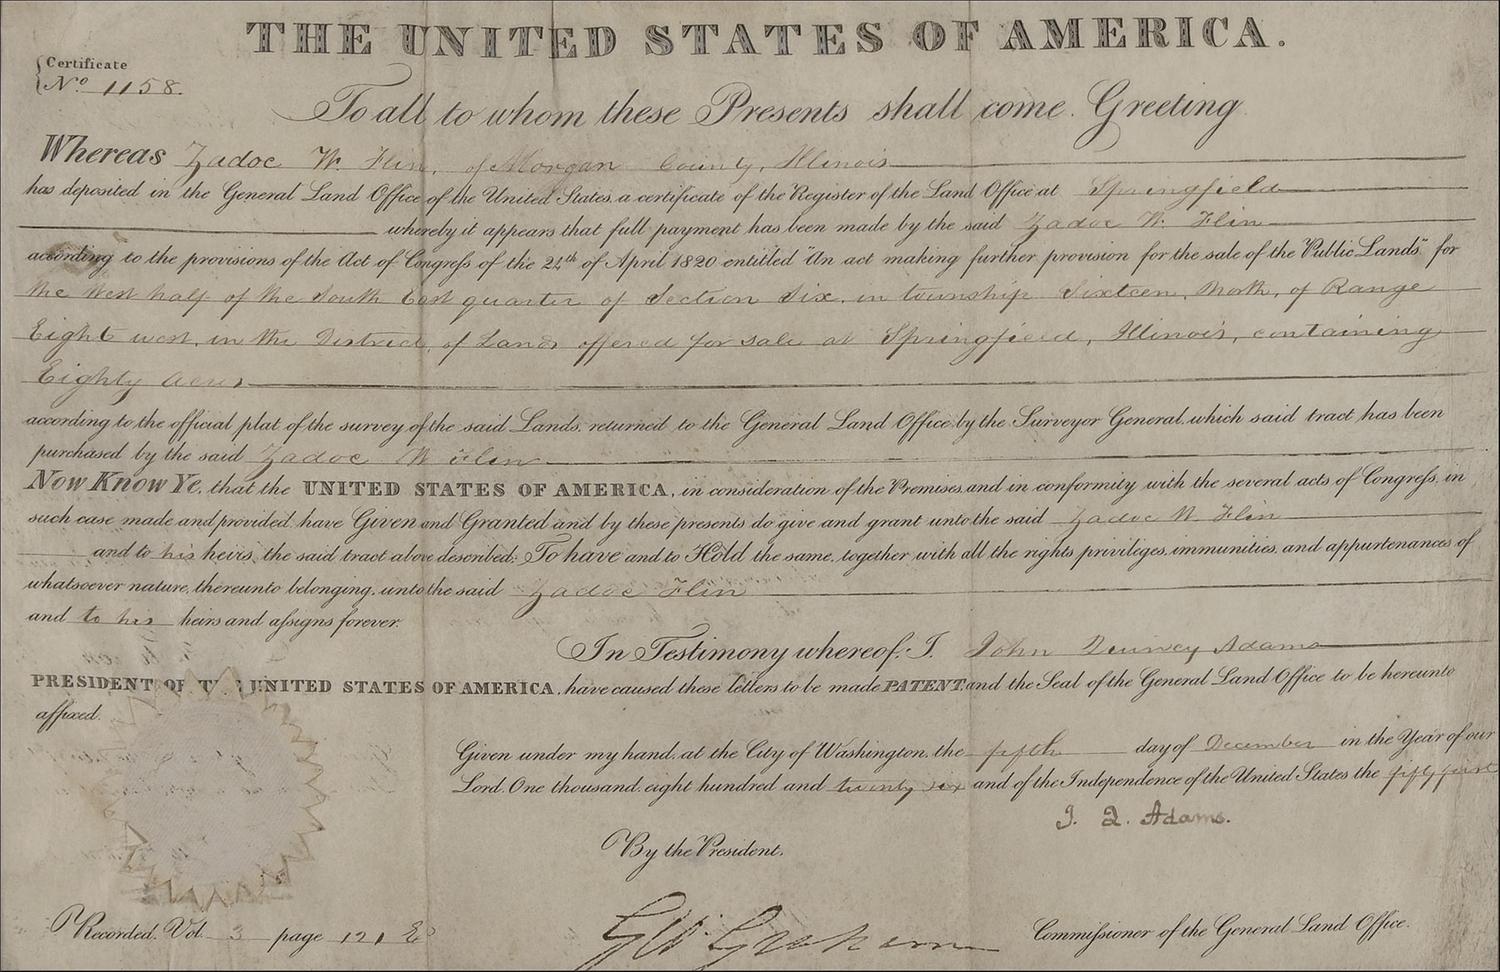 THE UNITED STATES OF AMERICA.
Certificate
No. 1158.
To all to whom these Presents shall come. Greeting
Whereas Zadoc W. Flin, of Morgan County, Illinois
has deposited in the General Land Office of the United States, a certificate of the Register of the Land Office at Springfield
whereby it appears that full payment has been made by the said Zadoc W. Flin
according to the provisions of the Act of Congress of the 24th of April 1820 entitled "An act making further provision for the sale of the Public Lands" for
the West half of the South East quarter of Section Six, in township Sixteen, North, of Range
Eight west, in the District of Lands offered for sale at Springfield, Illinois, containing
Eighty acres
according to the official plat of the survey of the said Lands, returned to the General Land Office by the Surveyor General, which said tract has been
purchased by the said Zadoc W Flin
Now Know Ye, that the UNITED STATES OF AMERICA, in consideration of the Premises, and in conformity with the several acts of Congress, in
such case made and provided, have Given and Granted and by these presents do give and grant unto the said Zadoc W. Flin
and to his heirs, the said tract above described: To have and to Hold the same, together with all the rights, privileges, immunities, and appurtenances of
whatsoever nature, thereunto belonging, unto the said Zadoc Flin
and to his heirs and assigns forever.
In Testimony whereof, I, John Quincy Adams
PRESIDENT OF THE UNITED STATES OF AMERICA, have caused these Letters to be made PATENT, and the Seal of the General Land Office to be hereunto
affixed.
Given under my hand, at the City of Washington, the fifth day of December in the Year of our
Lord, One thousand, eight hundred and twenty six and of the Independence of the United States the fifty first
J. Q. Adams.
By the President.
Geo. Graham Commissioner of the General Land Office.
Recorded, Vol. 3 page 121